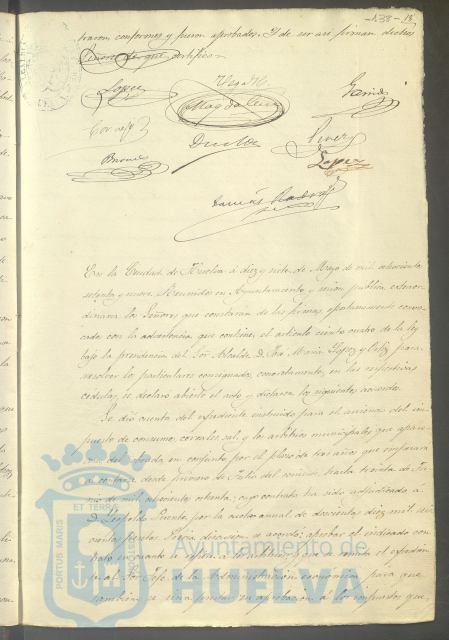 -138- 18
traron conformes y fueron aprobados. Y de ser asi firman dichos
Señores de que certifico.
Lopez
Magdalena
Garrido
Cornejo
Duclos
Perez
Lopez
Tomás
En la Ciudad de Huelva á diez y siete de Mayo de mil ochocientos
setenta y nueve. Reunidos en Ayuntamiento y sesion publica extraor-
dinaria los Señores que constarán de las firmas oportunamente convo-
cados con la advertencia que contiene el articulo ciento cuatro de la ley
bajo la presidencia del Sor. Alcalde D. José Maria Lopez y Ortiz para
resolver los particulares consignados concretamente en las respectivas
cedulas, se declaró abierto el acto y dictaron los siguientes acuerdos.
Se dió cuenta del espediente instruido para el arriendo del im-
puesto de consumos, cereales, sal, y los arbitrios municipales que
en conjunto por el plazo de tres años que empezarán
á contarse desde primero de Julio del corriente hasta treinta de Ju-
nio de mil ochocientos ochenta; cuyo contrato ha sido adjudicado á
D. Leopoldo por la suma anual de doscientas diez mil
pesetas. Previa discusion se acordó; aprobar el indicado con-
trato en cuanto se refiere á
al Sor. Jefe de la Administracion economica, para que
tambien se sirva prestar su aprobacion á los impuestos que
PORTUS MARIS
ET TERRÆ
Ayuntamiento de
HUELVA